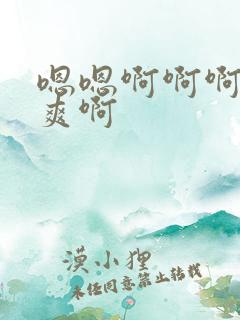 嗯嗯啊啊啊
爽啊
漠小狸
未经同意禁止转载